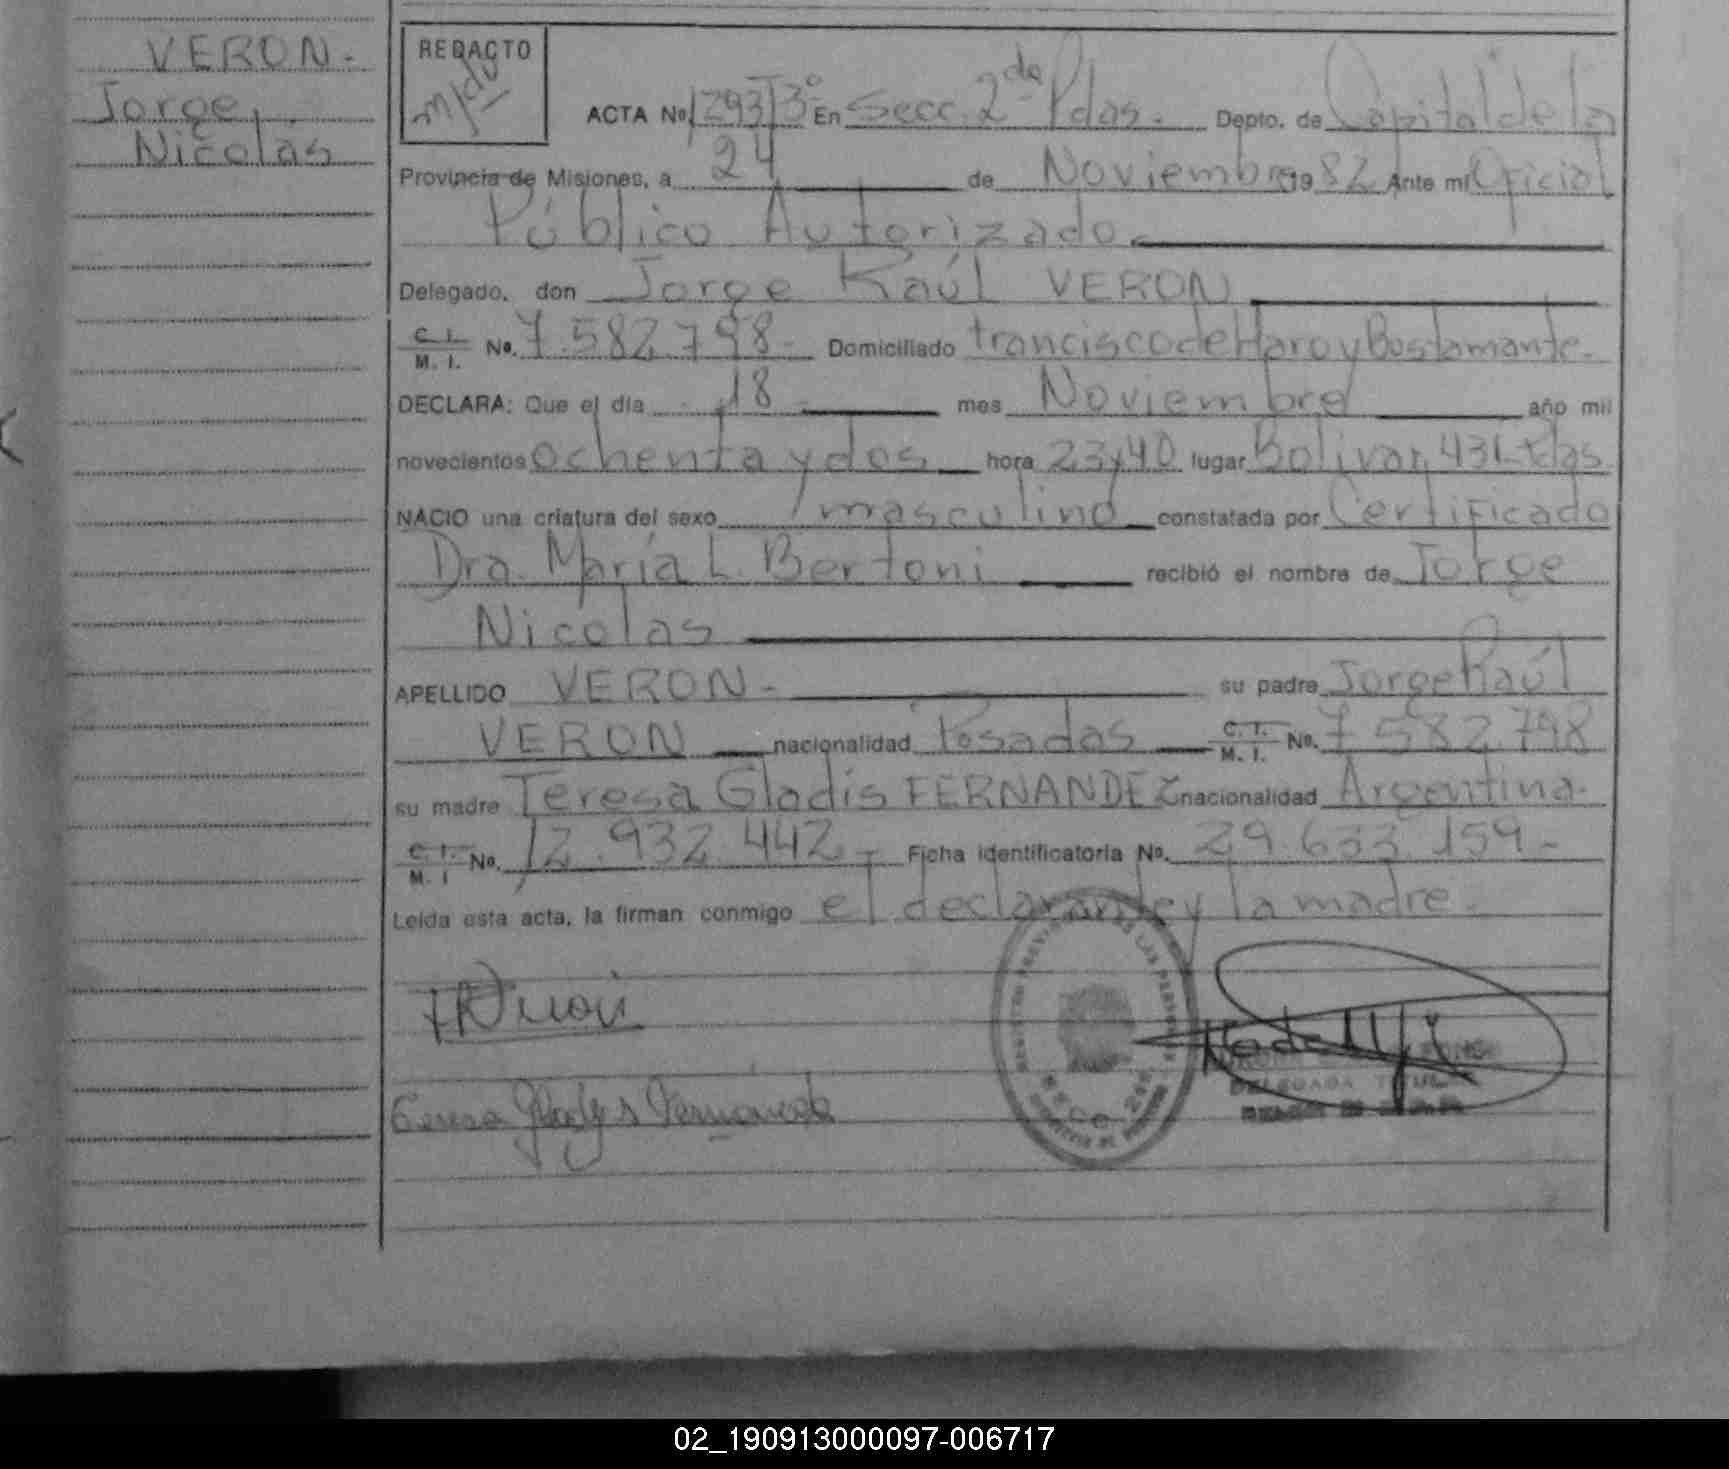 VERON.
Jorge
Nicolás
REDACTO
ACTA No. 1293 T 3º En Secc. 2da Pdas. Depto. de Capital de la
Provincia de Misiones, a 24 de Noviembre 19 82 Ante mí Oficial
Público Autorizado.
Delegado, don Jorge Raúl VERON
C. I. M. I. No. 7.582.798. Domiciliado Francisco de Haro y Bustamante.
DECLARA: Que el día 18 mes Noviembre año mil
novecientos ochenta y dos hora 23 y 40 lugar Bolívar 431-Pdas
NACIO una criatura del sexo masculino constatada por Certificado
Dra. María L. Bertoni recibió el nombre de Jorge
Nicolás
APELLIDO VERON. su padre Jorge Raúl
VERON nacionalidad Posadas C. I. M. I. No. 7.582.798
su madre Teresa Gladis FERNANDEZ nacionalidad Argentina.
C. I. M. I No. 12.932.442 - Ficha identificatoria No. 29.633.159 -
Leída esta acta, la firman conmigo el declarante y la madre.
Teresa Gladys Fernandez
DELEGADA TITULAR
02_190913000097-006717